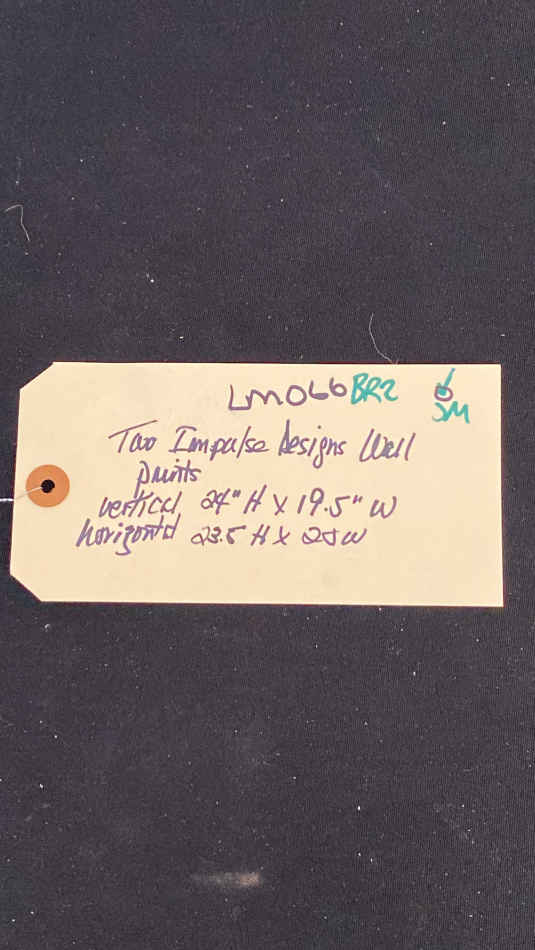 LM066 BR2
SM
Two Impulse Designs Wall
prints
vertical 24" H X 19.5" W
horizontal 23.5 H X 25 W